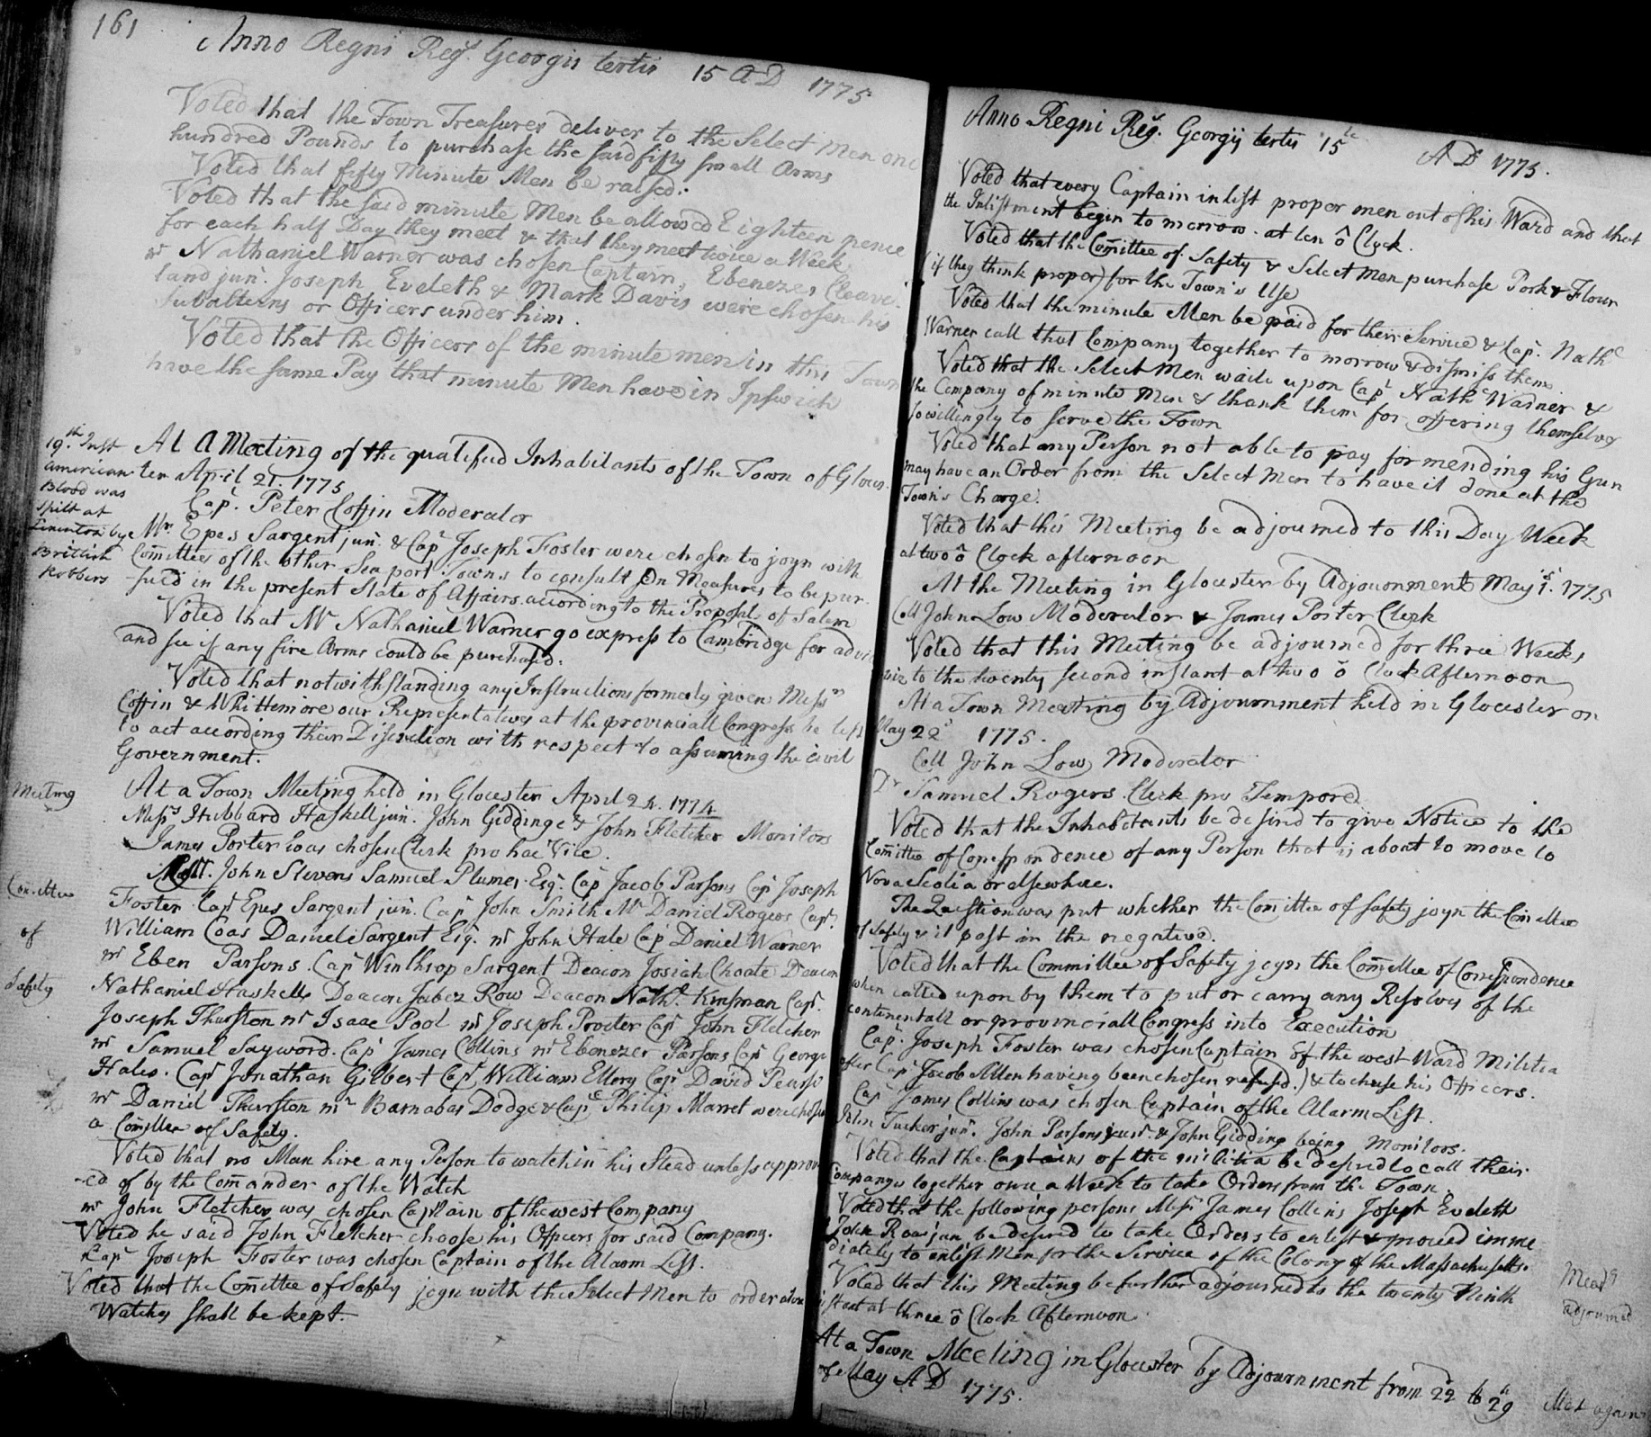 161
Anno Regni Regs. Georgii tertii 15 A D 1775
Voted that the Town Treasurer deliver to the Select Men one
hundred Pounds to purchase the said fifty small Arms
Voted that fifty Minute Men be raised.
Voted that the said minute Men be allowed Eighteen pence
for each half Day they meet & that they meet twice a Week
mr Nathaniel Warner was chosen Captain, Ebenezer Cleave-
land junr. Joseph Eveleth & Mark Davis were chosen his
Subalterns or Officers under him.
Voted that the Officers of the minute men in this Town
have the same Pay that minute Men have in Ipswich
19th Inst
american
Blood was
Spilt at
Lexinton by
British
Robbers
At A Meeting of the qualified Inhabitants of the Town of Glous-
ter April 21. 1775
Capt. Peter Coffin Moderator
Mr. Epes Sargent junr. & Capt Joseph Foster were chosen to joyn with
Comittees of the other Sea port Towns to consult on Measures to be pur-
-sued in the present State of Affairs according to the Proposals of Salem
Voted that Mr Nathaniel Warner go express to Cambridge for advice
and see if any fire Arms could be purchased.
Voted that notwithstanding any Instructions formerly given Messrs
Coffin & Whittemore our Representatives at the provinciall Congress be left
to act according their Discretion with respect to assuming the civil
Government.
Meeting
At a Town Meeting held in Glocester April 24. 1774
Messrs Hubbard Haskell jun. John Giddinge & John Fletcher Monitors
James Porter was chosen Clerk pro hac Vice.
Comittee
of
Safety
John Stevens Samuel Plumer Esqr. Capt Jacob Parsons Capt Joseph
Foster Capt Epes Sargent jun. Capt John Smith Mr Daniel Rogers Capt.
William Coas Daniel Sargent Esq. mr John Hale Capt Daniel Warner
mr Eben Parsons. Capt Winthrop Sargent Deacon Josiah Choate Deacon
Nathaniel Haskell Deacon Jabez Row Deacon Nathl. Kinsman Capt.
Joseph Thurston mr Isaac Pool mr Joseph Procter Capt John Fletcher
mr Samuel Sayword. Capt James Collins mr Ebenezer Parsons Capt George
Hales. Capt Jonathan Gilbert Capt William Ellery Capt David Pearse
mr Daniel Thurston mr Barnabas Dodge & Capt Philip Marret were chosen
a Comittee of Safety.
Voted that no Man hire any Person to watch in his Stead unless approv
-ed of by the Comander of the Watch
mr John Fletcher was chosen Captain of the west Company
Voted he said John Fletcher choose his Officers for said Company.
Capt Joseph Foster was chosen Captain of the Alarm List.
Voted that the Comittee of Safety joyn with the Select Men to order where
Watches shall be kept.
Anno Regni Regs. Georgij tertii 15th A D 1775.
Voted that every Captain inlist proper men out of his Ward and that
the Inlistment begin to morrow at ten o Clock.
Voted that the Comittee of Safety & Select Men purchase Pork & Flour
(if they think proper) for the Town's Use
Voted that the minute Men be paid for their Service & Capt. Nathl
Warner call that Company together to morrow & dismiss them.
Voted that the Select Men waite upon Capt Nathl Warner &
the Company of minute Men & thank them for offering themselves
so willingly to serve the Town
Voted that any Person not able to pay for mending his Gun
may have an Order from the Select Men to have it done at the
Town's Charge.
Voted that this Meeting be adjourned to this Day Week
at two o Clock afternoon
At the Meeting in Glocester by Adjournment May 1st. 1775
Coll John Low Moderator & James Porter Clerk
Voted that this Meeting be adjourned for three Weeks
viz to the twenty second instant at two o Clock Afternoon
At a Town Meeting by Adjournment held in Glocester on
May 22d 1775.
Coll John Low Moderator
Dr Samuel Rogers Clerk pro Tempore
Voted that the Inhabitants be desired to give Notice to the
Comittee of Correspondence of any Person that is about to move to
Nova Scotia or elsewhere.
The Question was put whether the Comittee of Safety joyn the Comittee
of Safety & it past in the negative.
Voted that the Committee of Safety joyn the Comittee of Correspondence
when called upon by them to put or carry any Resolves of the
continentall or provinciall Congress into Execution
Capt. Joseph Foster was chosen Captain of the west Ward Militia
after Capt Jacob Allen having been chosen refused.) & to chuse his Officers.
Capt James Collins was chosen Captain of the Alarm List.
John Tucker junr. John Parsons & John Gidding being Monitors.
Voted that the Captains of the militia be desired to call their
Companys together once a Week to take Orders from the Town
Voted that the following persons Messrs James Collins Joseph Eveleth
John Row jun be desired to take Orders to enlist & proceed imme
diately to enlist Men for the Service of the Colony of the Massachusetts.
Voted that this Meeting be further adjourned to the twenty Ninth
instant at three o Clock Afternoon
adjourned
At a Town Meeting in Glocester by Adjournment from 22 to 29
of May A D 1775.
Met again